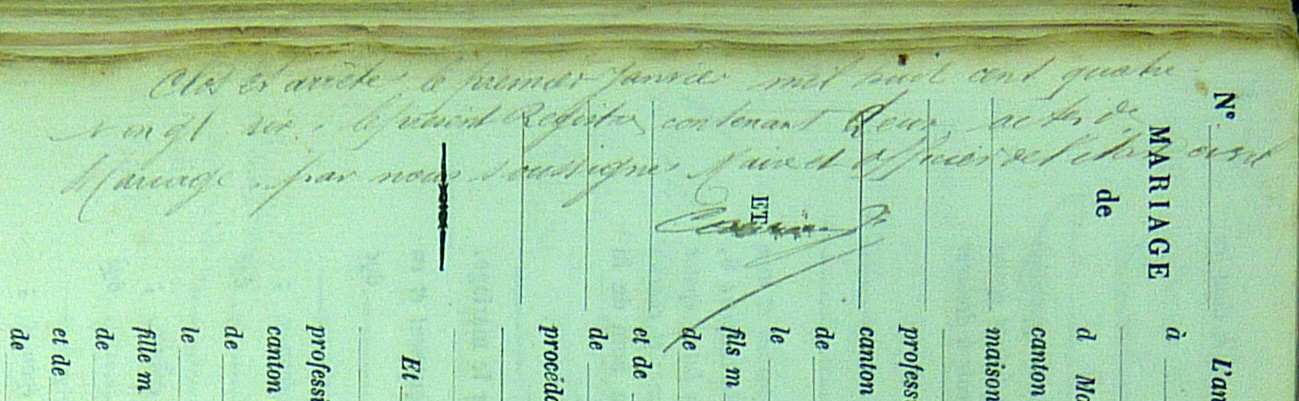 Clos et arrêté le premier Janvier mil huit cent quatre
vingt six, le présent Registre contenant deux actes de
Mariage par nous soussigné Maire et officier de l'état civil
Nº
MARIAGE
de
ET
L'an
à
d
canton
maison
profess
canton
de
le
fils m
de
et de
de
procédé
Et
professi
canton
de
le
fille m
de
et de
de